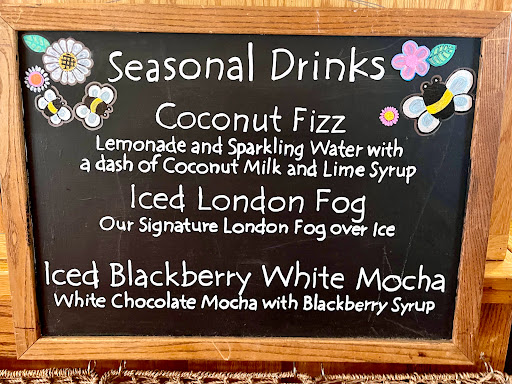 Seasonal Drinks
Coconut Fizz
Lemonade and Sparkling Water with
a dash of Coconut Milk and Lime Syrup
Iced London Fog
Our Signature London Fog over Ice
Iced Blackberry White Mocha
White Chocolate Mocha with Blackberry Syrup